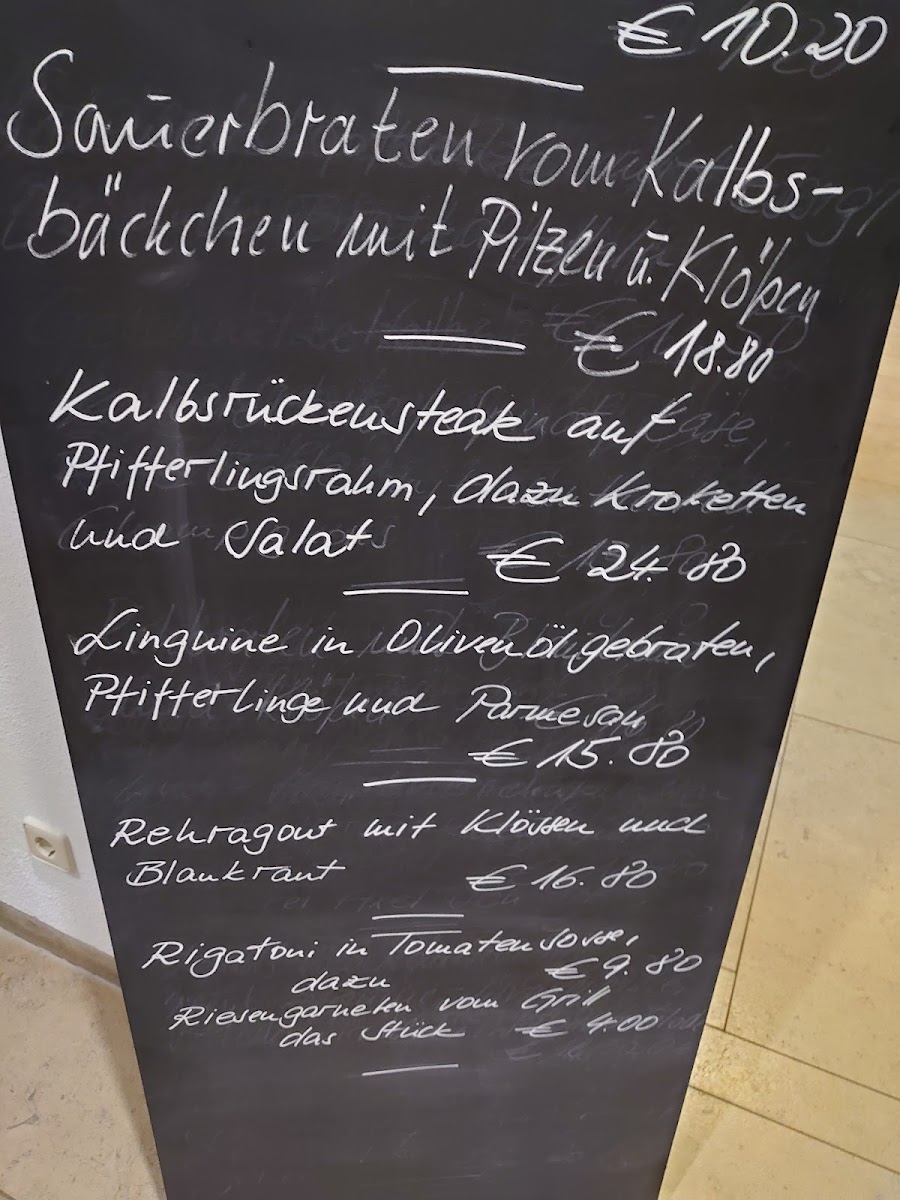 € 10.20
Sauerbraten vom Kalbs-
bäckchen mit Pilzen u. Klößen
€ 18.80
Kalbsrückensteak auf
Pfifferlingsrahm, dazu Kroketten
und Salat
€ 24.80
Linguine in Olivenöl gebraten,
Pfifferlinge und Parmesan
€ 15.80
Rehragout mit Klössen und
Blaukraut € 16.80
Rigatoni in Tomatensosse,
dazu € 9.80
Riesengarnelen vom Grill
das Stück € 4.00